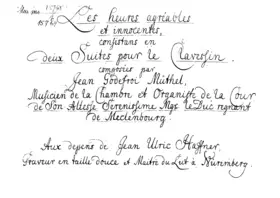 Les heures agréables
et innocentes,
consistans en
deux Suites pour le Clavessin.
composées par
Jean Godefroi Müthel,
Musicien de la Chambre et Organiste de la Cour
de Son Altesse Serenissime Mgr. le Duc regnant
de Mecklenbourg.
Aux depens de Jean Ulric Haffner,
Graveur en taille douce et Maitre du Lut à Nuremberg.